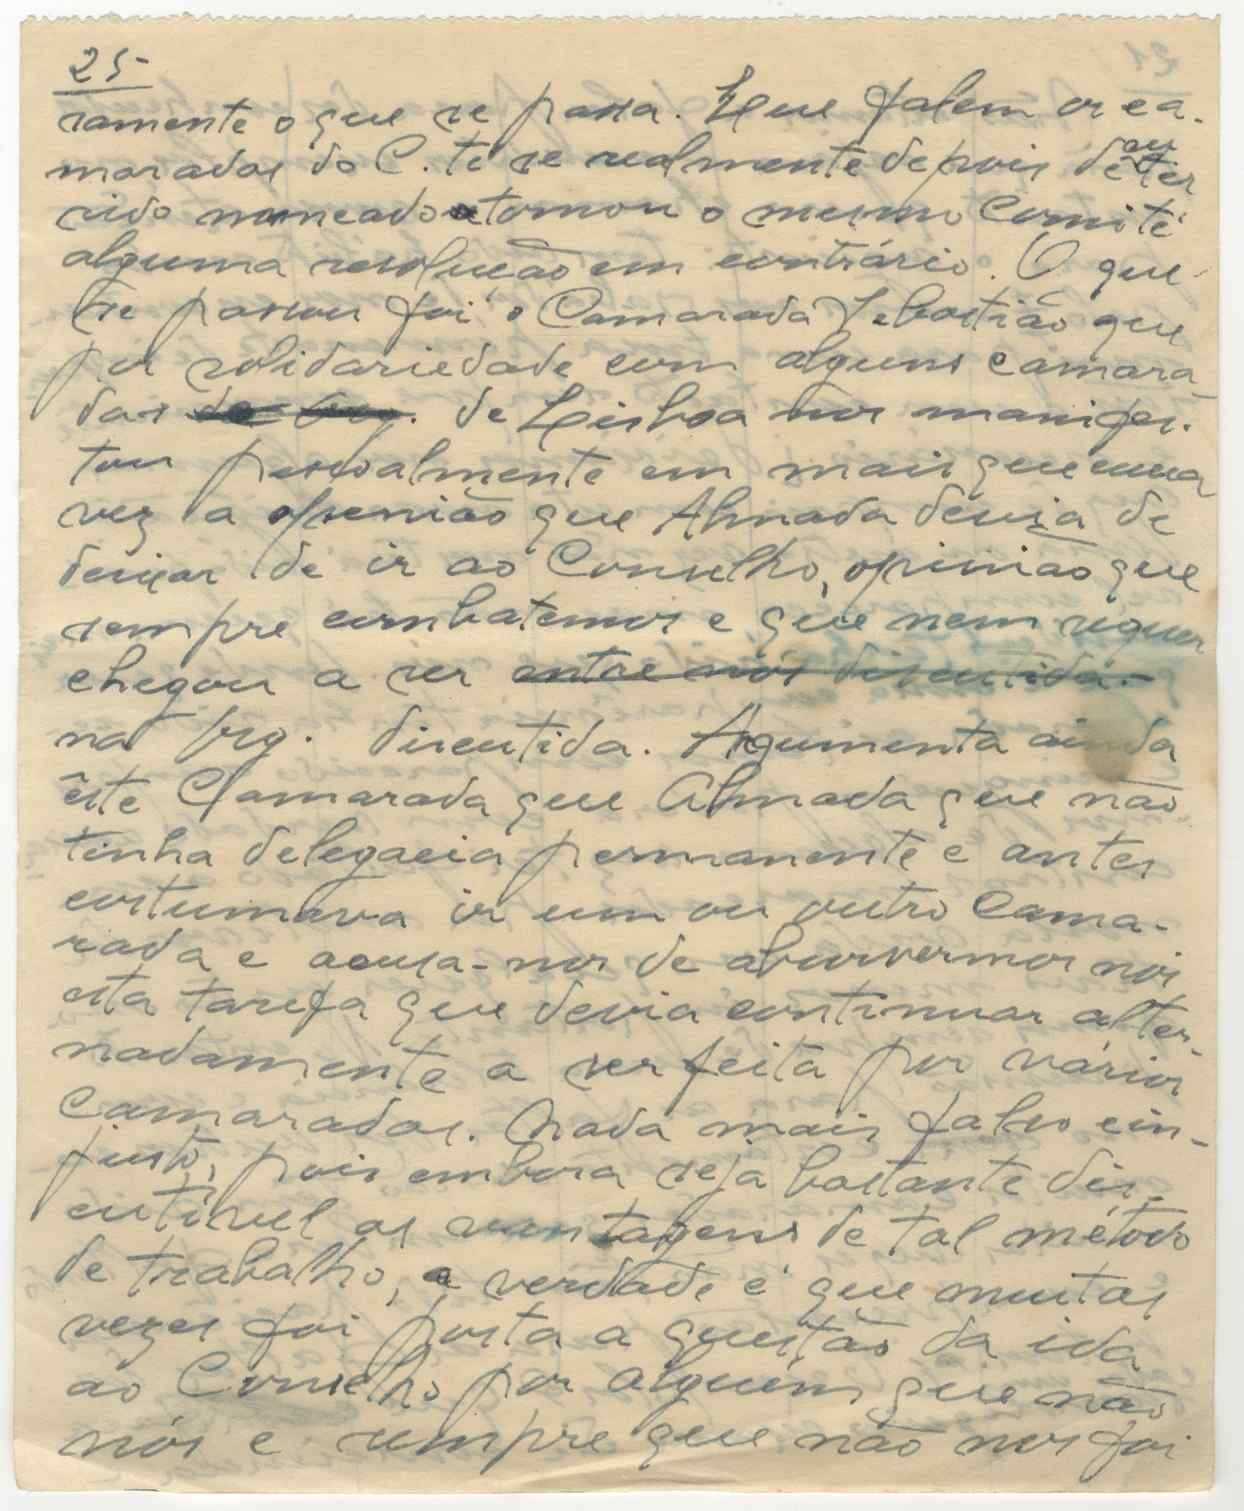 25
ramente o que se passa. Que falem os ca-
maradas do C. te se realmente depois de ter
sido nomeado tomou o mesmo Comité
alguma resolução em contrário. O que
se passou foi o Camarada Sebastião que
por solidariedade com alguns camara
das de Lisboa nos manifes-
tou pessoalmente em mais que uma
vez a openião que Almada devia de
deixar de ir ao Conselho, opinião que
sempre combatemos e que nem siquer
chegou a ser entre nós discutida.
na frg. discutida. Argumenta ainda
êste Camarada que Almada que não
tinha delegacia permanente e antes
costumava ir um ou outro Cama-
rada e acusa-nos de absorvermos nós
esta tarefa que devia continuar alter-
nadamente a ser feita por vários
Camaradas. Nada mais falso e in-
justo, pois embora seja bastante dis-
cutivel as vantagens de tal método
de trabalho, a verdade é que muitas
vezes foi posta a questão da ida
ao Conselho por alguém que não
nós e sempre que não nos foi